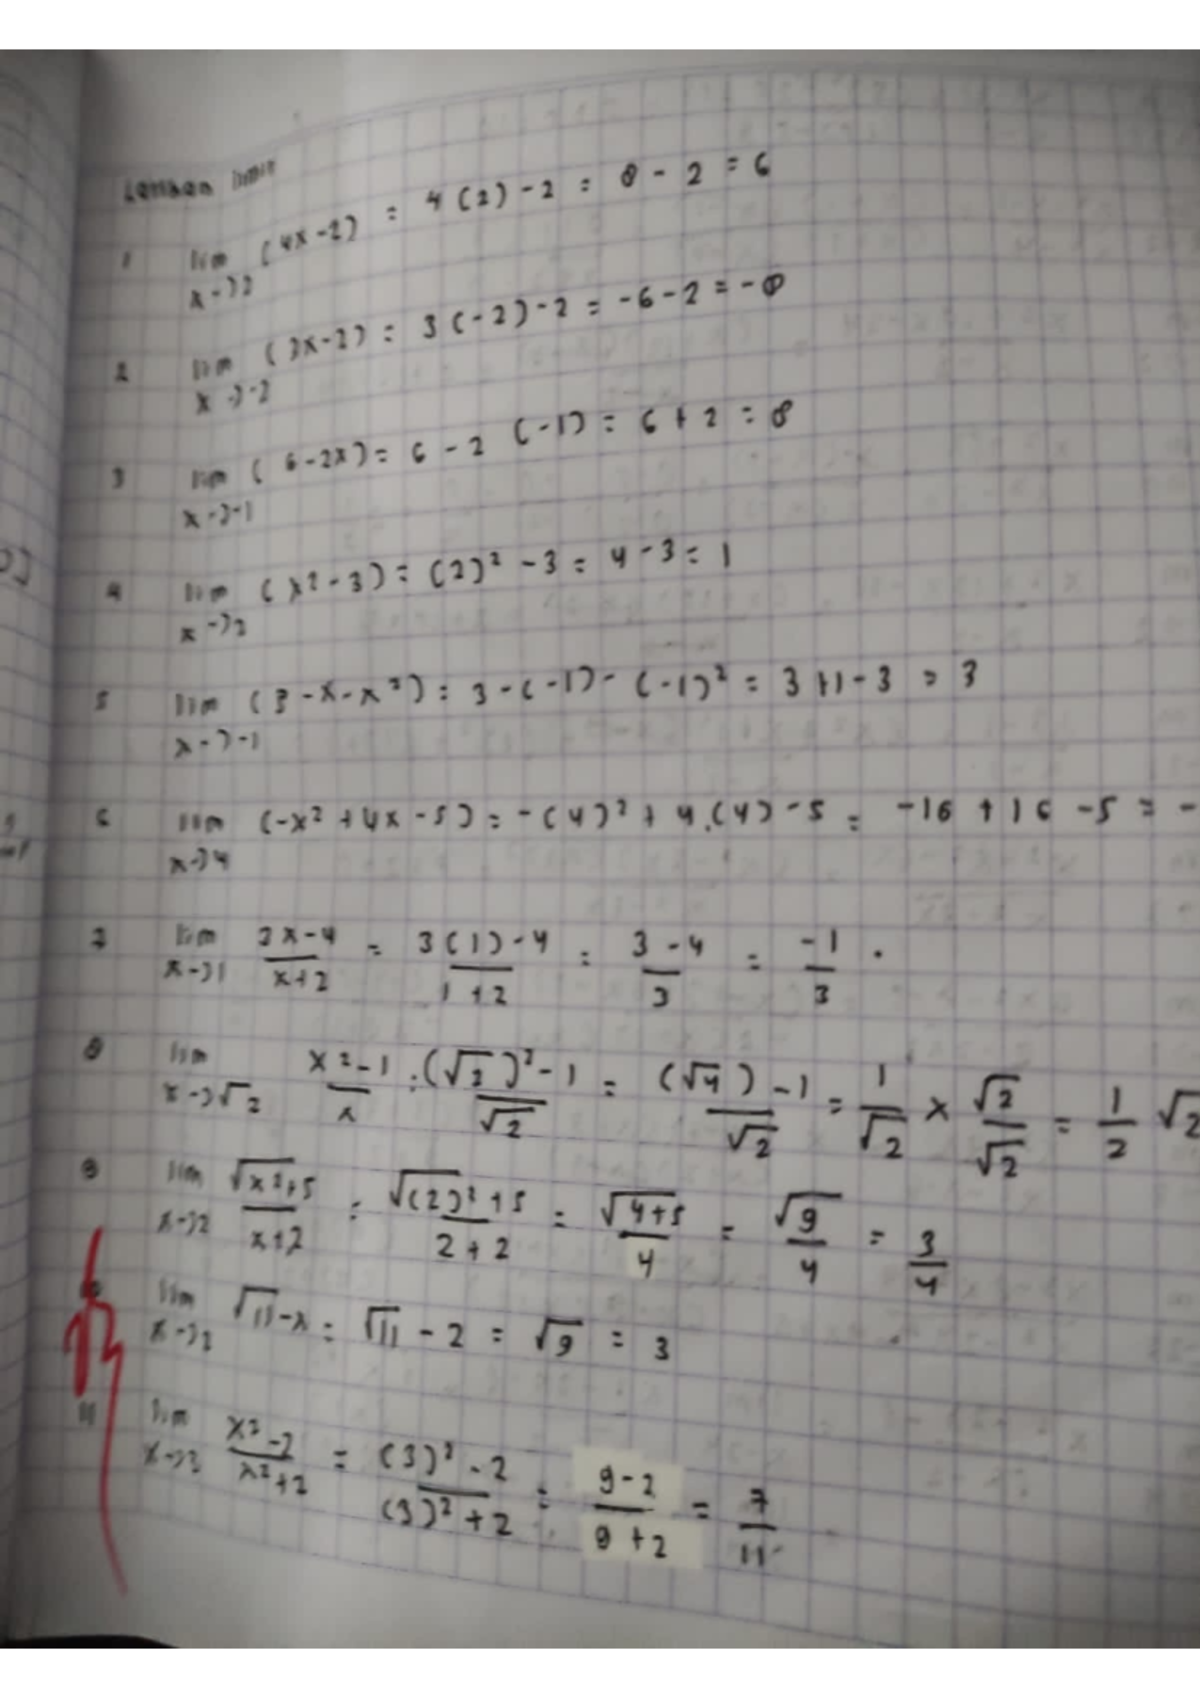 Latihan limit
1 lim (4x-2) = 4(2)-2 = 8-2 = 6
x->2
2 lim (3x-2) = 3(-2)-2 = -6-2 = -8
x->-2
3 lim (6-2x) = 6-2 (-1) = 6+2 = 8
x->-1
4 lim (x²-3) = (2)²-3 = 4-3 = 1
x->2
5 lim (3-x-x²) = 3-(-1)-(-1)² = 3+1-3 = 3
x->-1
6 lim (-x²+4x-5) = -(4)²+4.(4)-5 = -16+16-5 = -
x->4
7 lim x->1 3x-4/x+2 = 3(1)-4/1+2 = 3-4/3 = -1/3 .
8 lim x->√2 x²-1/x : (√2)²-1/√2 = (√4)-1/√2 = 1/√2 x √2/√2 = 1/2 √2
9 lim x->2 √x²+5/x+2 : √(2)²+5/2+2 = √4+5/4 = √9/4 = 3/4
lim x->2 √11-x = √11-2 = √9 = 3
11 lim x->3 x²-2/x²+2 = (3)²-2/(3)²+2 = 9-2/9+2 = 7/11